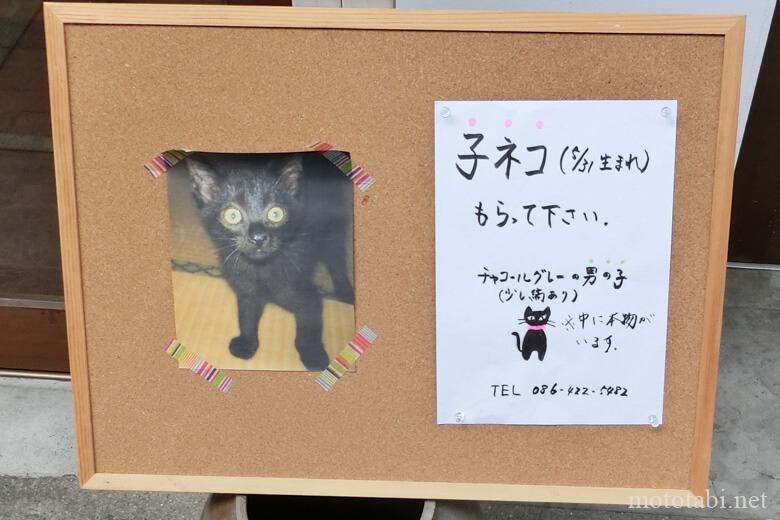 子ネコ(5/31生まれ)
もらって下さい.
チャコールグレーの男の子
(少し縞あり)
※中に本物が
います.
TEL 086-422-5482
mototabi.net